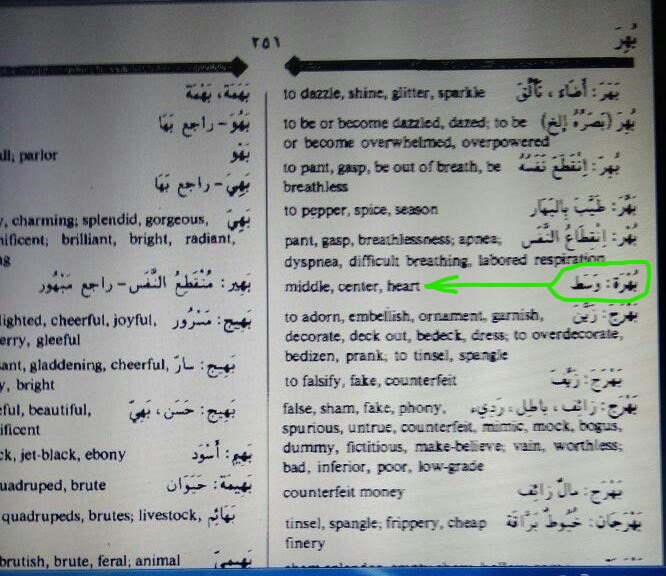 بُهِرَ
٢٥١
بَهَرَ: أَضَاءَ، تَأَلَّقَ to dazzle, shine, glitter, sparkle
بُهِرَ (بَصَرُهُ إلخ) to be or become dazzled, dazed; to be
or become overwhelmed, overpowered
بُهِرَ: اِنْقَطَعَ نَفَسُهُ to pant, gasp, be out of breath, be
breathless
بَهَّرَ: طَيَّبَ بِالبَهَار to pepper, spice, season
بُهْر: اِنْقِطَاعُ النَّفَس pant, gasp, breathlessness; apnea;
dyspnea, difficult breathing, labored respiration
بُهْرَة: وَسَط middle, center, heart
بَهْرَجَ: زَيَّنَ to adorn, embellish, ornament, garnish,
decorate, deck out, bedeck, dress; to overdecorate,
bedizen, prank; to tinsel, spangle
بَهْرَجَ: زَيَّفَ to falsify, fake, counterfeit
بَهْرَج: زائف، باطِل، رَدِيء false, sham, fake, phony,
spurious, untrue, counterfeit, mimic, mock, bogus,
dummy, fictitious, make-believe; vain, worthless;
bad, inferior, poor, low-grade
بَهْرَج: مالٌ زائف counterfeit money
بَهْرَجَان: خُيُوطٌ بَرَّاقَة tinsel, spangle; frippery, cheap
finery
بَهَمَة، بَهْمَة
بَهُوَ - راجع بَهَا
بَهْو parlor
بَهِيَ - راجع بَهَا
بَهِيّ charming; splendid, gorgeous,
brilliant, bright, radiant,
بَهِير: مُنْقَطِعُ النَّفَس - راجع مَبْهُور
بَهِيج: مَسْرُور cheerful, joyful,
gleeful
بَهِيج: سارّ gladdening, cheerful,
bright
بَهِيج: حَسَن، بَهِيّ beautiful,
بَهِيم: أَسْوَد jet-black, ebony
بَهِيمَة: حَيَوَان brute
بَهَائِم quadrupeds, brutes; livestock,
بَهِيمِيّ brutish, brute, feral; animal